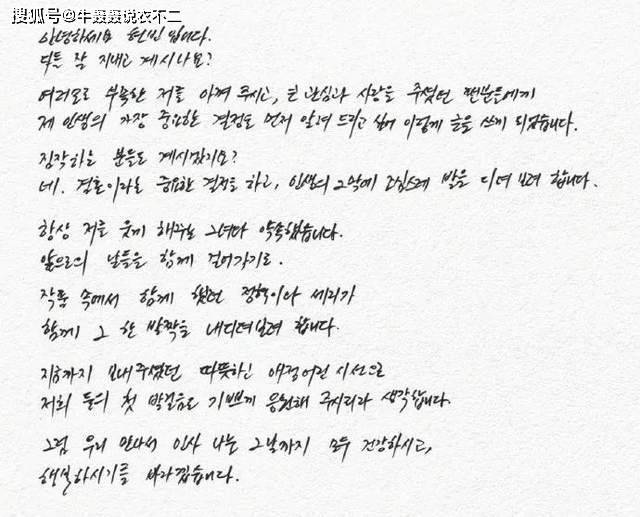 搜狐号@牛轰轰说衣不二
안녕하세요 현빈입니다.
다들 잘 지내고 계시나요?
여러모로 부족한 저를 아껴 주시고, 큰 관심과 사랑을 주셨던 팬분들에게
제 인생의 가장 중요한 결정을 먼저 알려 드리고 싶어 이렇게 글을 쓰게 되었습니다.
짐작하는 분들도 계시겠지요?
네. 결혼이라는 중요한 결정을 하고, 인생의 2막에 조심스레 발을 디뎌 보려 합니다.
항상 저를 웃게 해주는 그녀와 약속했습니다.
앞으로의 날들을 함께 걸어가기로.
작품 속에서 함께 했던 정혁이와 세리가
함께 그 한 발짝을 내디뎌보려 합니다.
지금까지 보내주셨던 따뜻하신 애정어린 시선으로
저희 둘의 첫 발걸음도 기쁘게 응원해 주시리라 생각합니다.
그럼 우리 만나서 인사 나눌 그날까지 모두 건강하시고,
행복하시기를 바라겠습니다.